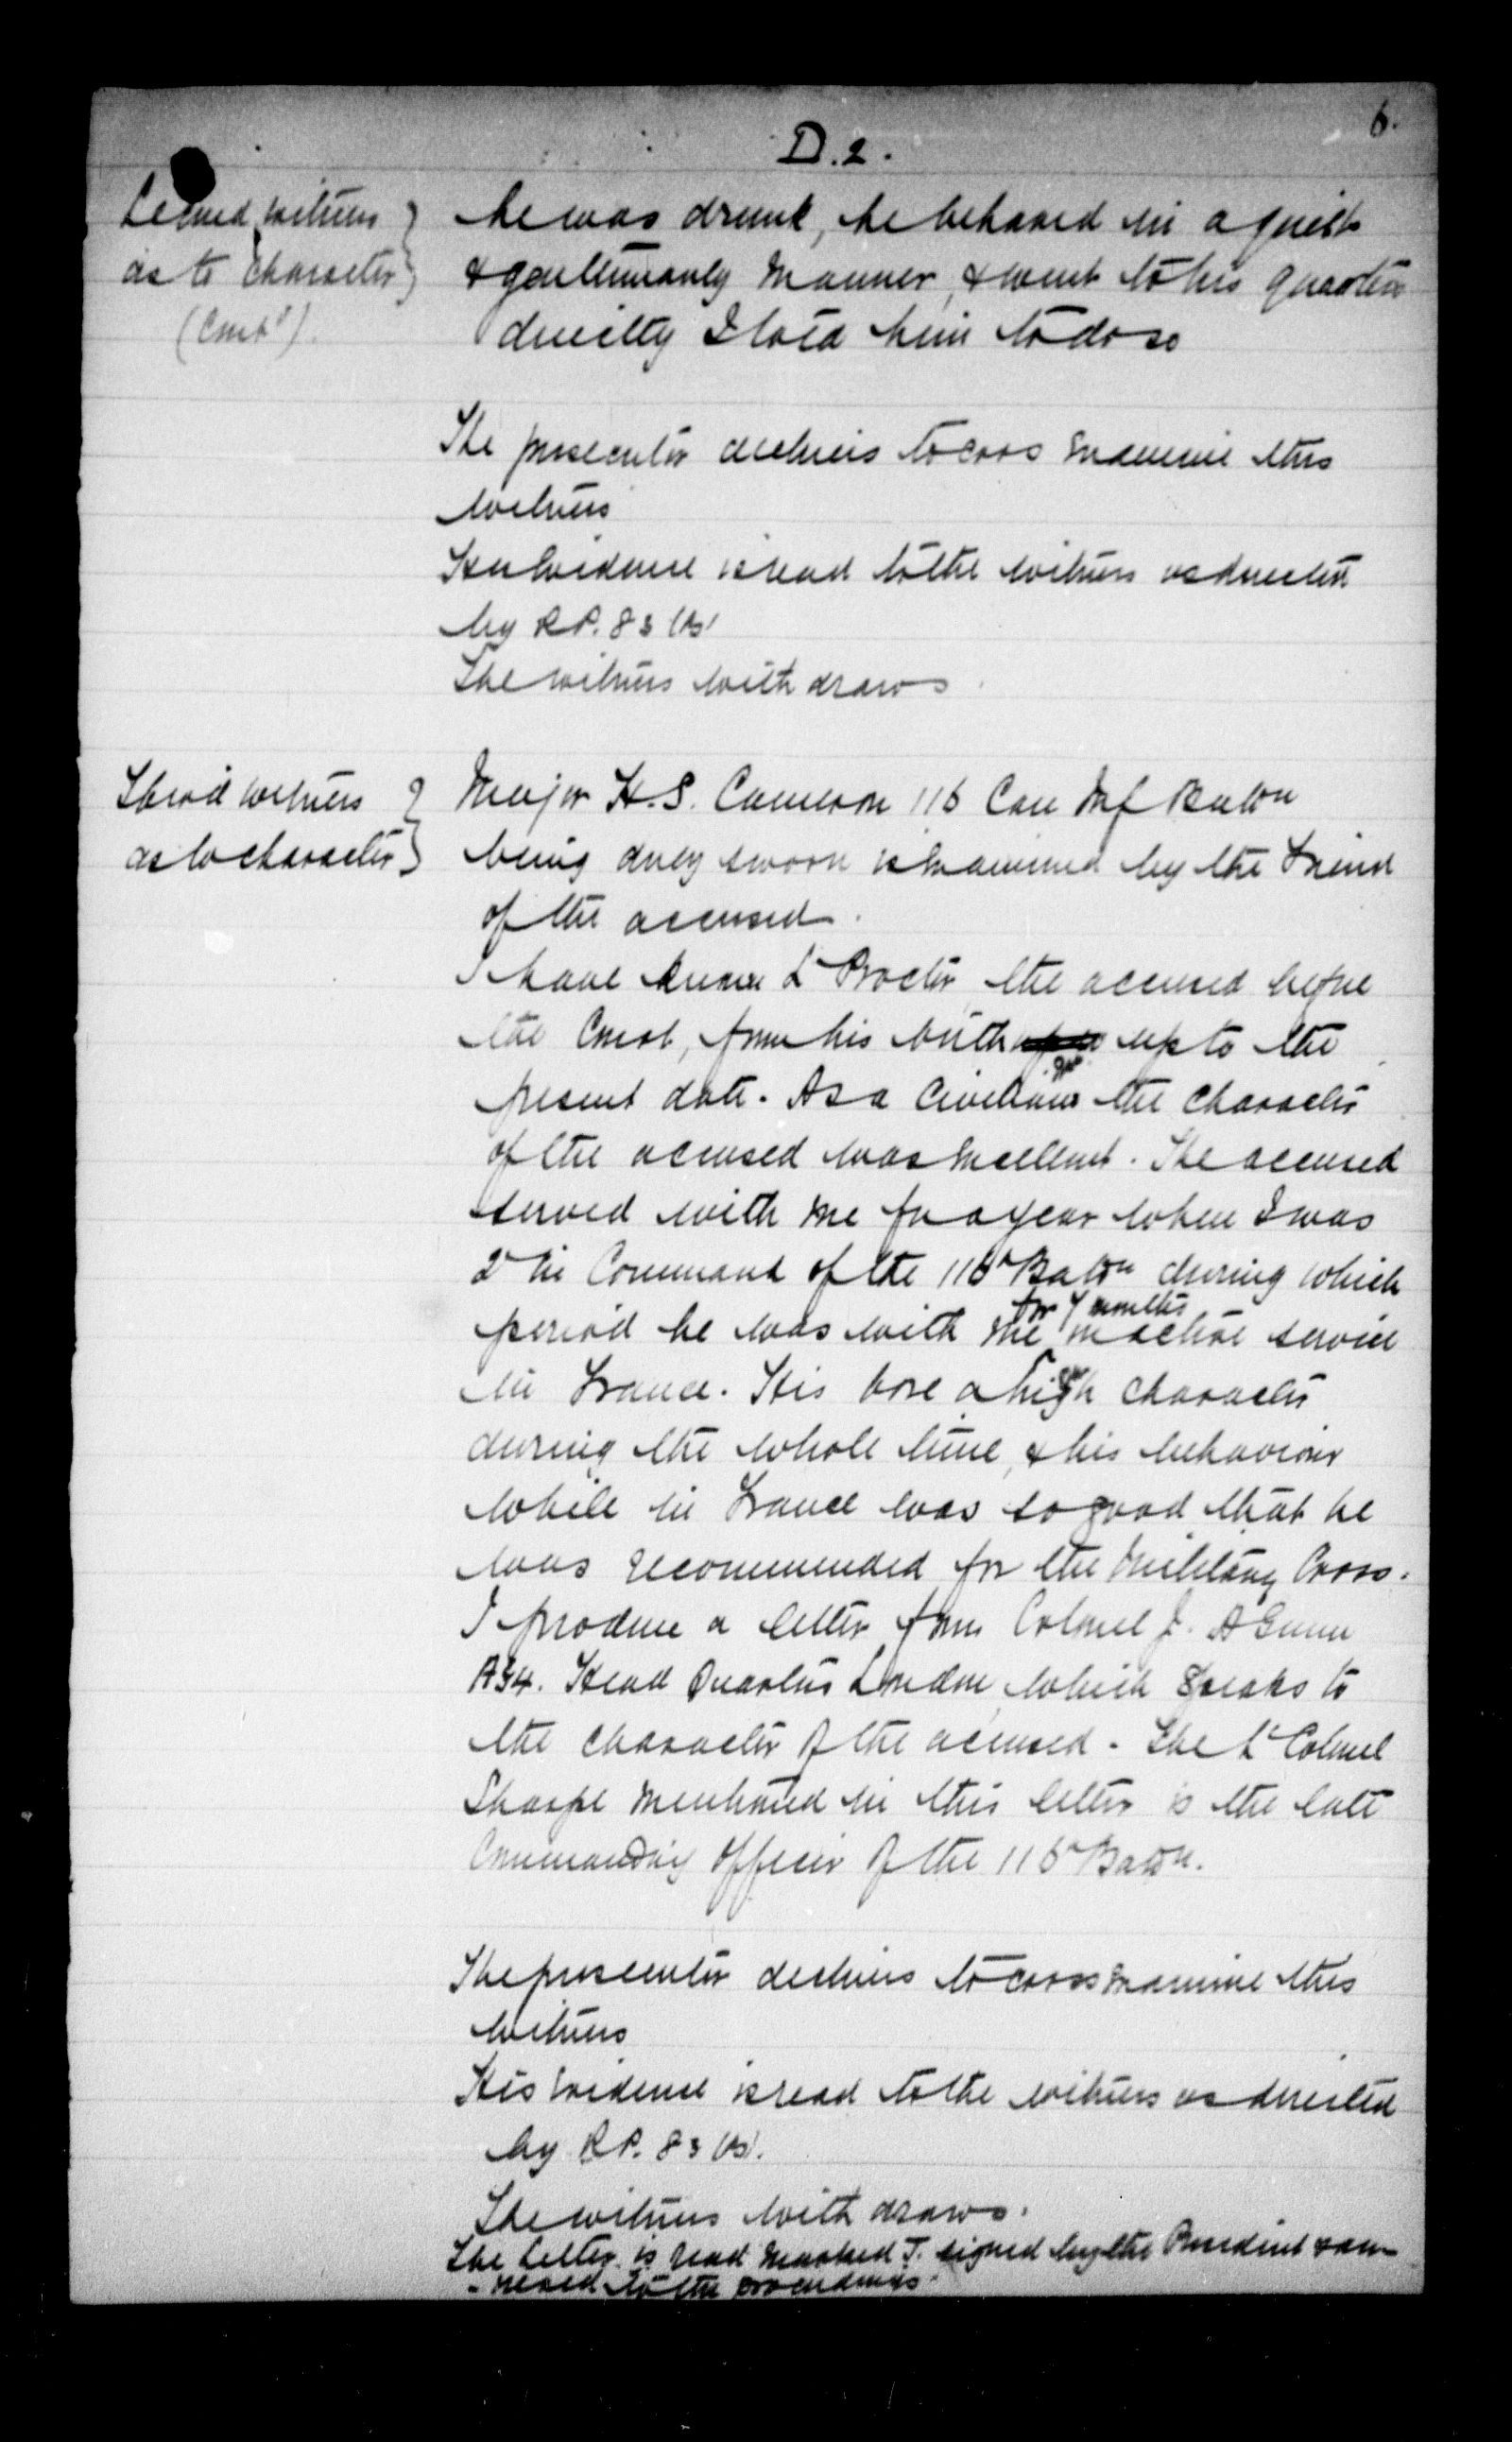 6.
D.2.
Second witness
as to character
(Cont^d).
he was drunk, he behaved in a quiet
& gentlemanly manner, & went to his quarters
directly I told him to do so
The prosecutor declines to cross examine this
witness
His evidence is read to the witness as directed
by R.P. 83 (B)
The witness withdraws
Third witness
as to character
Major H.S. Cameron 116 Can Inf Batt^n
being duly sworn is examined by the Friend
of the accused.
I have known L^t Proctor the accused before
the Court, from his birth up to the
present date. As a civilian the character
of the accused was excellent. The accused
served with me for a year when I was
2^d in Command of the 116^th Batt^n during which
period he was with me for 7 months in active service
in France. His bore a high character
during the whole time, & his behaviour
while in France was so good that he
was recommended for the Military Cross.
I produce a letter from Colonel J. A Gunn
Head Quarters London which speaks to
the character of the accused. The L^t Colonel
Sharpe mentioned in this letter is the late
Commanding Officer of the 116^th Batt^n.
The prosecutor declines to cross examine this
witness
His evidence is read to the witness as directed
by R.P. 83 (B).
The witness withdraws.
The letter is read marked J. signed by the President & an-
-nexed to the proceedings.